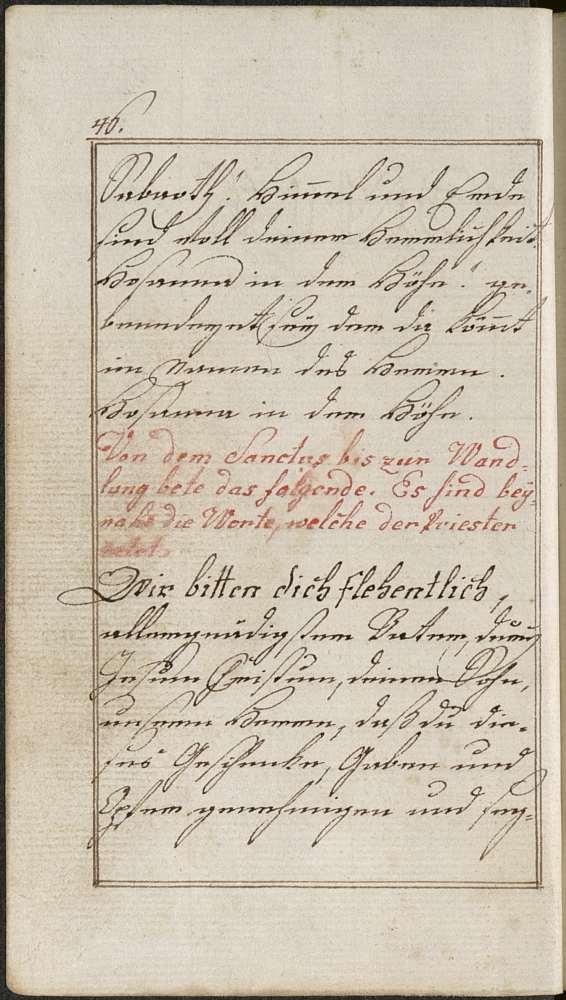 46.
Sabaoth! Himmel und Erde
sind voll deiner Herrlichkeit.
Hosanna in der Höhe! ge-
benedeyet sey der da kömt
im Namen des Herren.
Hosanna in der Höhe.
Von dem Sanctus bis zur Wand-
lung bete das folgende. Es sind bey-
nahe die Worte, welche der Priester
betet.
Wir bitten dich flehentlich,
allergnädigster Vater, durch
Jesum Christum, deinen Sohn,
unsern Herren, daß du die-
ses Geschenke, Gaben und
Opfer genehmigen und seg-